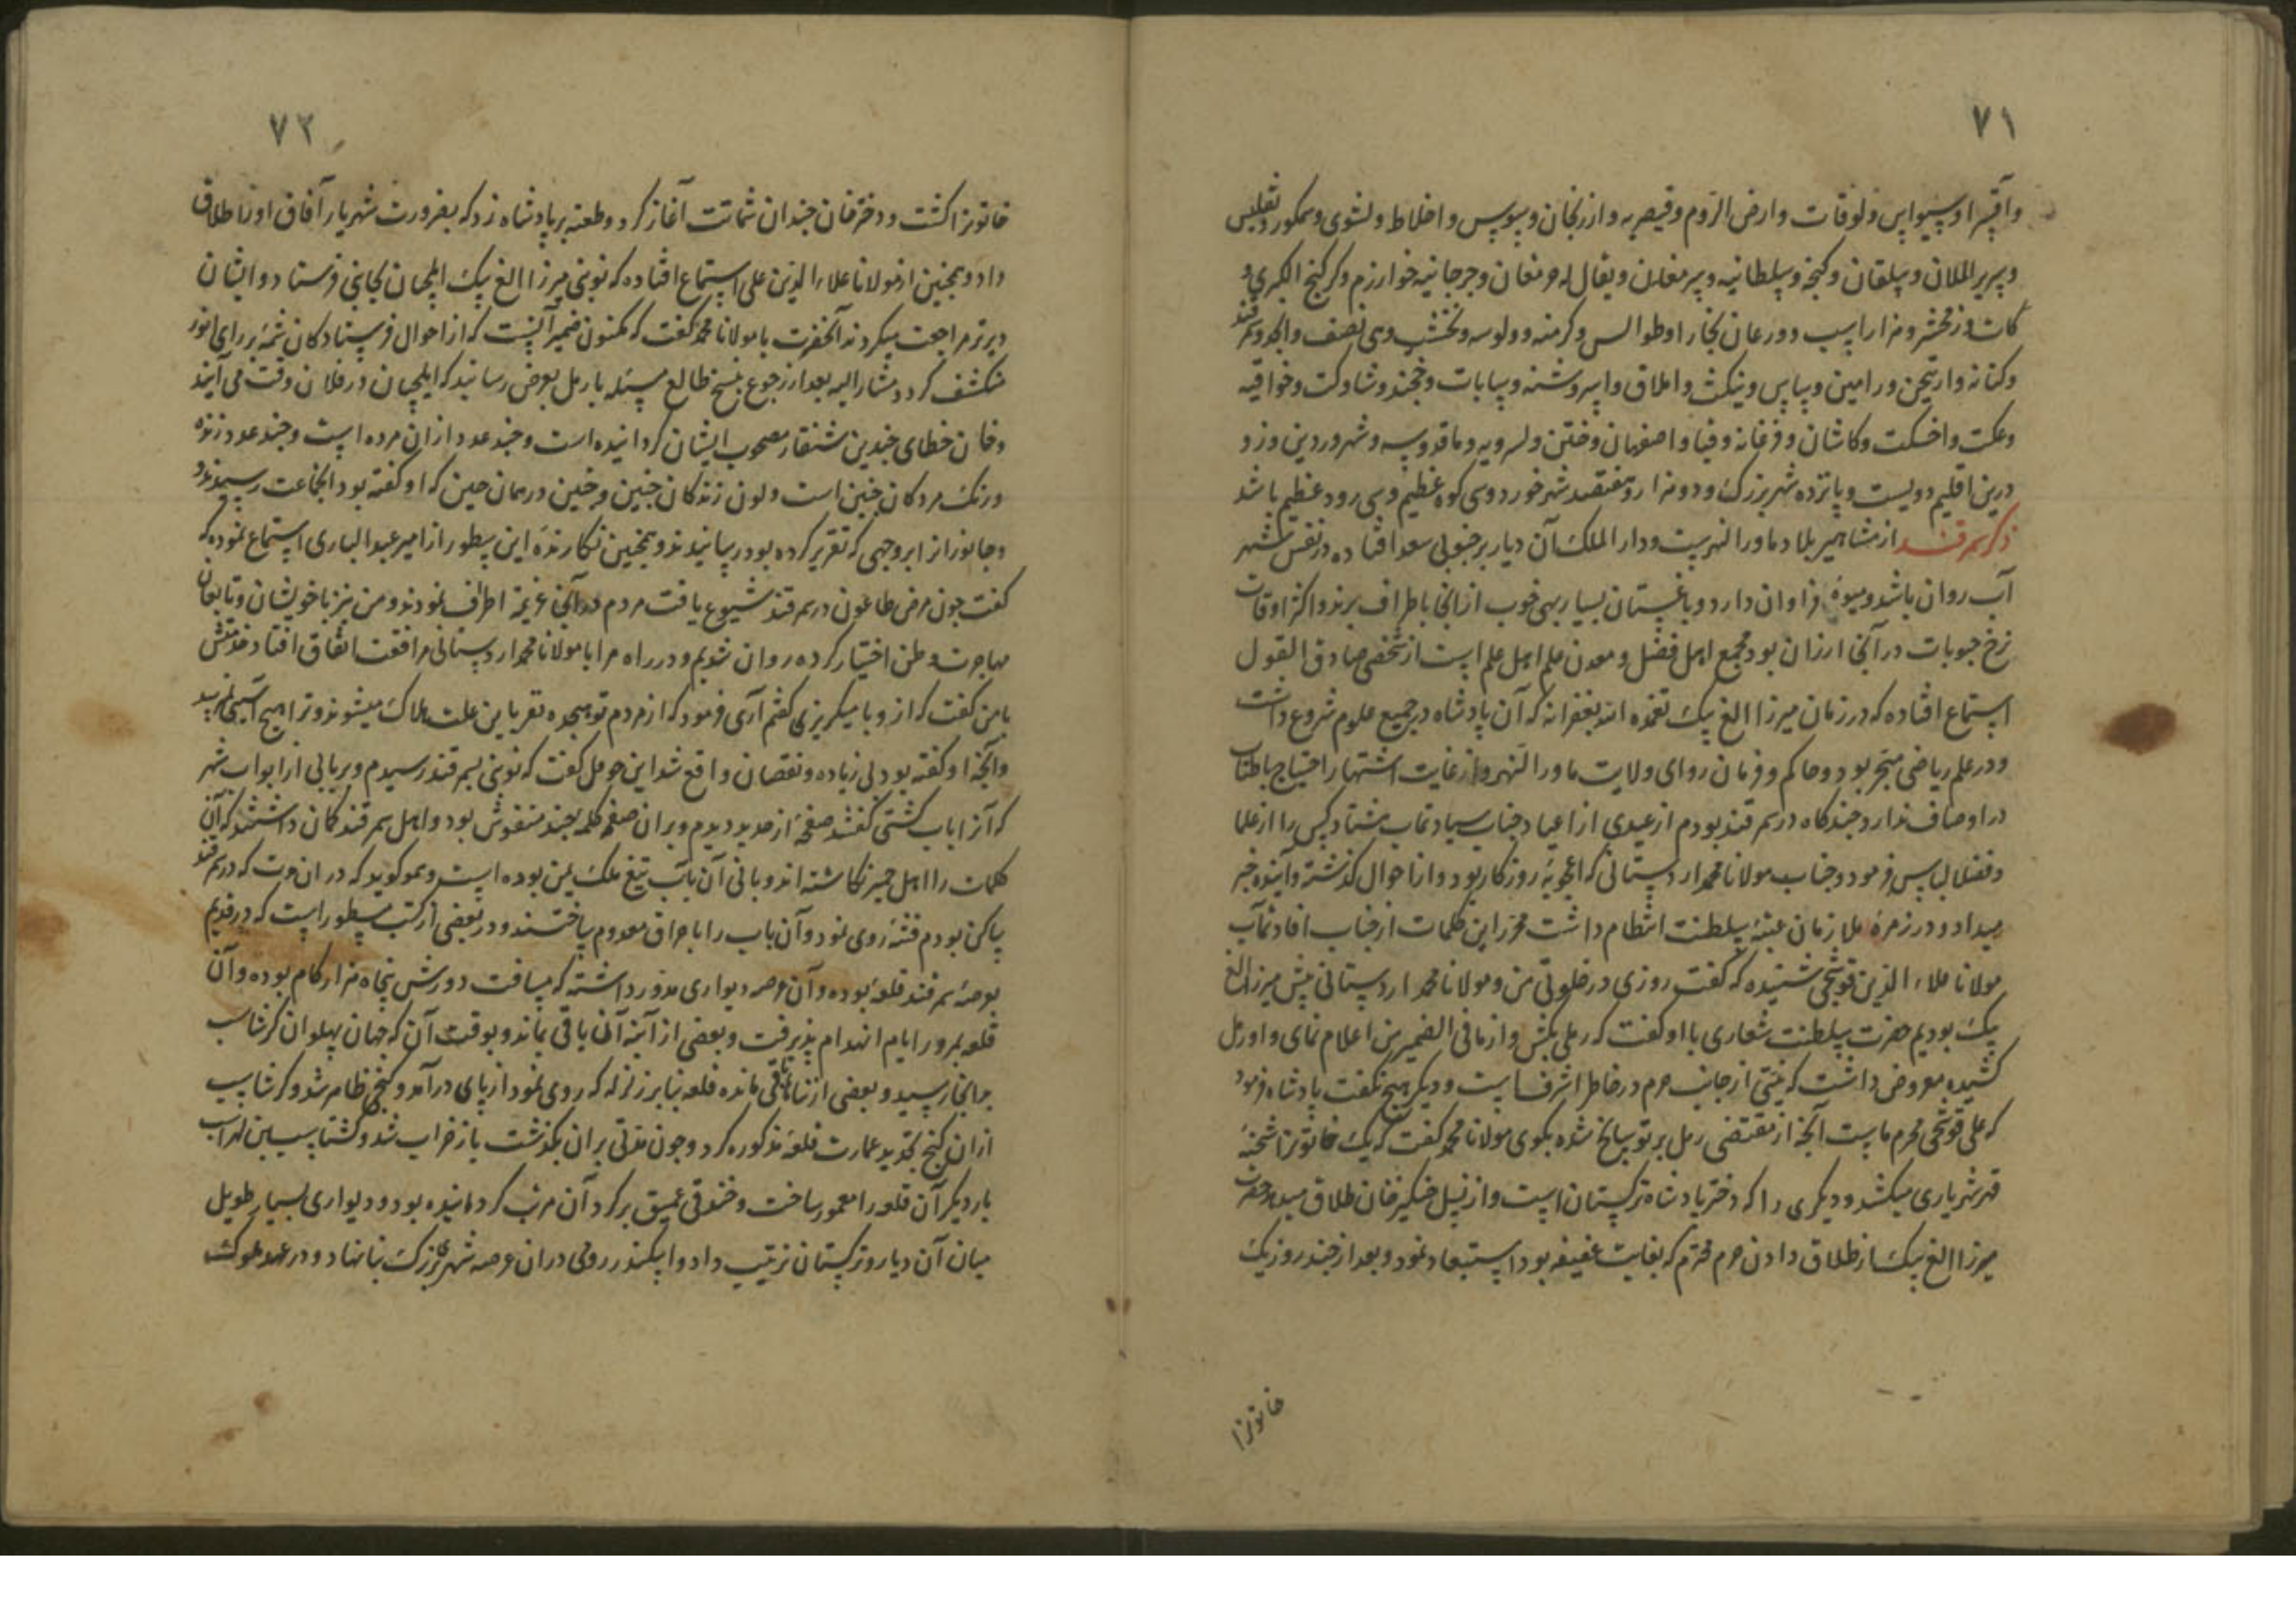 ۷۱
وآقسرا وسیواس ولوقات وارض الروم وقیصریه وارزنجان و واخلاط ونشوی وسمکور وتفلیس
وبیلقان وکنجه وسلطانیه وجرجانیه خوارزم وکرکنج الکبری و
کات وزمخشر وهزاراسب ودورعان بخارا وطوالس وکرمنه وولوسه ونخشب وهی نصف
وکتانه ورامین وبیاس ونیکث وایلاق واسروشنه وسابات وخجند وشاوکت وخواقیه
واخسکت وکاشان وفرغانه وقبا واصفهان وختن وقدوسه وشهرورد
درین اقلیم دویست وپانزده شهر بزرگ ودو هزار وهفتصد شهر خورد وسی کوه عظیم وسی رود عظیم باشد
ذکر سمرقند از مشاهیر بلاد ماورالنهرست ودار الملک آن دیار بر جنوبی سغد افتاده در نفس شهر
آب روان باشد ومیوه فراوان دارد وباغستان بسیار بهی خوب از انجا باطراف برند واکثر اوقات
نرخ حبوبات در آنجا ارزان بود مجمع اهل فضل ومعدن علم اهل علم است از شخصی صادق القول
استماع افتاده که در زمان میرزا الغ بیک تغمده الله بغفرانه که آن پادشاه در جمیع علوم شروع داشت
ودر علم ریاضی متبحر بود وحاکم وفرمان روای ولایت ماورا النهر واز غایت اشتهار احتیاج باطناب
در اوصاف ندارد چند کاه در سمرقند بودم از عیدی از اعیاد جناب سیادتماب هشتاد کس را از علما
وفضلا لباس فرمود وجناب مولانا محمد اردستانی که اعجوبه روزکار بود واز احوال کذشته وآینده خبر
میداد ودر زمره ملازمان عتبه سلطنت انتظام داشت محرر این کلمات از جناب افادتمآب
مولانا علاء الدین قوشجی شنیده که گفت روزی در خلوتی من ومولانا محمد اردستانی پیش میرزا الغ
بیک بودیم حضرت سلطنت شعاری با او گفت که رملی بکش واز مافی الضمیر من اعلام نمای واو رمل
کشیده معروض داشت که نیتی از جانب حرم در خاطر اشرفست ودیگر هیچ نگفت پادشاه فرمود
که علی قوشجی محرم ماست آنچه از مقتضی رمل بر تو سانح شده بگوی مولانا محمد گفت که یک خاتونرا شحنه
قهر شهریاری میکشد ودیکری را که دختر پادشاه ترکستان است واز نسل چنکیز خان طلاق میدهد حضرت
میرزا الغ بیک از طلاق دادن حرم محترم که بغایت عفیفه بود استبعاد نمود وبعد از چند روز یک
خاتونرا
۷۲
خاتونرا کشت ودختر خان چندان شماتت آغاز کرد وطعنه بر پادشاه زد که بضرورت شهریار آفاق اورا طلاق
داد وهمچنین از مولانا علاء الدین علی استماع افتاده که نوبتی میرزا الغ بیک ایلچیان بجایی فرستاد وایشان
دیرتر مراجعت میکردند آنحضرت با مولانا محمد گفت که مکنون ضمیر آنست که از احوال فرستادکان شمه بر رای انور
منکشف کردد مشار الیه بعد از رجوع طالع مسئله با رمل بعرض رسانید که ایلچیان در فلان وقت می آیند
وخان خطای چندین شنقار مصحوب ایشان کردانیده است وچند عدد از آن مرده است وچند عدد زنده
ورنک مردکان چنین است ولون زندکان چنین وچنین در همان حین که او کفته بود انجماعت رسیدند و
وجانورانرا بر وجهی که تقریر کرده بود رسانیدند وهمچنین نکارنده این سطور از امیر عبد الباری استماع نموده که
کفت چون مرض طاعون در سمرقند شیوع یافت مردم در آنجا عزیمه اطراف نمودند ومن نیز با خویشان وتابعان
مهاجرت وطن اختیار کرده روان شدیم ودر راه مرا با مولانا محمد اردستانی مرافقت اتفاق افتاد خدمتش
با من کفت که از وبا میکریزی کفتم آری فرمود که از مردم تو هجده نفر باین علت هلاک میشوند وترا هیچ آسیبی نرسد
وآنچه او کفته بود بی زیاده ونقصان واقع شد ابن حوقل کفت که نوبتی بسمرقند رسیدم وبر بابی از ابواب شهر
که آنرا باب کشتی گفتند صفحه از حدید دیدم وبر ان صفحه کلمه چند منقوش بود واهل سمرقند کمان داشتند که آن
کلمات را اهل حمیر نکاشته اند وبانی آن باب تبع ملک یمن بوده است وهمو کوید که در ان وقت که در سمرقند
ساکن بودم فتنه روی نمود وآن باب را باحراق معدوم ساختند ودر بعضی از کتب مسطور است که در قدیم
بعرصه سمرقند قلعه بوده وآن عرصه دیواری مدور داشته که مسافت دورش پنجاه هزار کام بوده وآن
قلعه بمرور ایام انهدام پذیرفت وبعضی از آبنه آنجا باقی بماند وبوقت آن که جهان پهلوان کرشاسب
بدانجا رسید وبعضی از بنا باقی مانده قلعه بنا بر زلزله که روی نمود از پای درآمد وکنجی ظاهر شد وکرشاسب
ازان کنج تجدید عمارت قلعه مذکوره کرد وچون مدتی بران بکذشت باز خراب شد وکشتاسب بن لهراسب
بار دیکر آن قلعه را معمور ساخت وخندقی عمیق بر کرد آن مرتب کردانیده بود ودیواری بسیار طویل
میان آن دیار وترکستان ترتیب داد واسکندر رومی دران عرصه شهری بزرک بنا نهاد ودر عهد ملوک